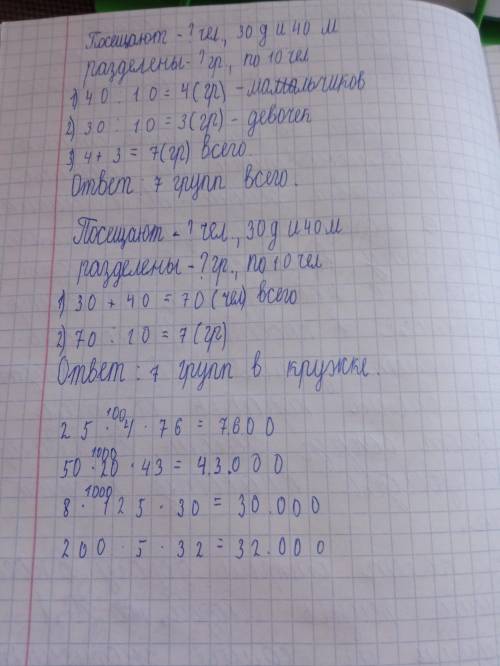 Посещают - ? чел., 30 д и 40 м
разделены - ? гр., по 10 чел
1) 40 : 10 = 4 (гр) - мальчиков
2) 30 : 10 = 3 (гр) - девочек
3) 4 + 3 = 7 (гр) всего.
Ответ: 7 групп всего.
Посещают - ? чел., 30 д и 40 м
разделены - ? гр., по 10 чел
1) 30 + 40 = 70 (чел) всего
2) 70 : 10 = 7 (гр)
Ответ: 7 групп в кружке.
100
25 · 4 · 76 = 7.600
1000
50 · 20 · 43 = 43.000
1000
8 · 125 · 30 = 30.000
200 · 5 · 32 = 32.000